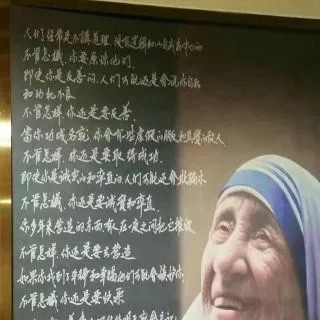 人们经常是不讲道理、没有逻辑和以自我为中心的
不管怎样，你要原谅他们，
即使你是友善的，人们可能还是会说你自私
和动机不良
不管怎样，你还是要友善，
当你功成名就，你会有一些虚假的朋友和真实的敌人
不管怎样，你还是要取得成功，
即使你是诚实的和率直的人们可能还是会欺骗你
不管怎样，你还是要诚实和率直，
你多年来营造的东西有人在一夜之间把它摧毁
不管怎样，你还是要去营造
如果你找到了平静和幸福他们可能会嫉妒你
不管怎样你还是要快乐